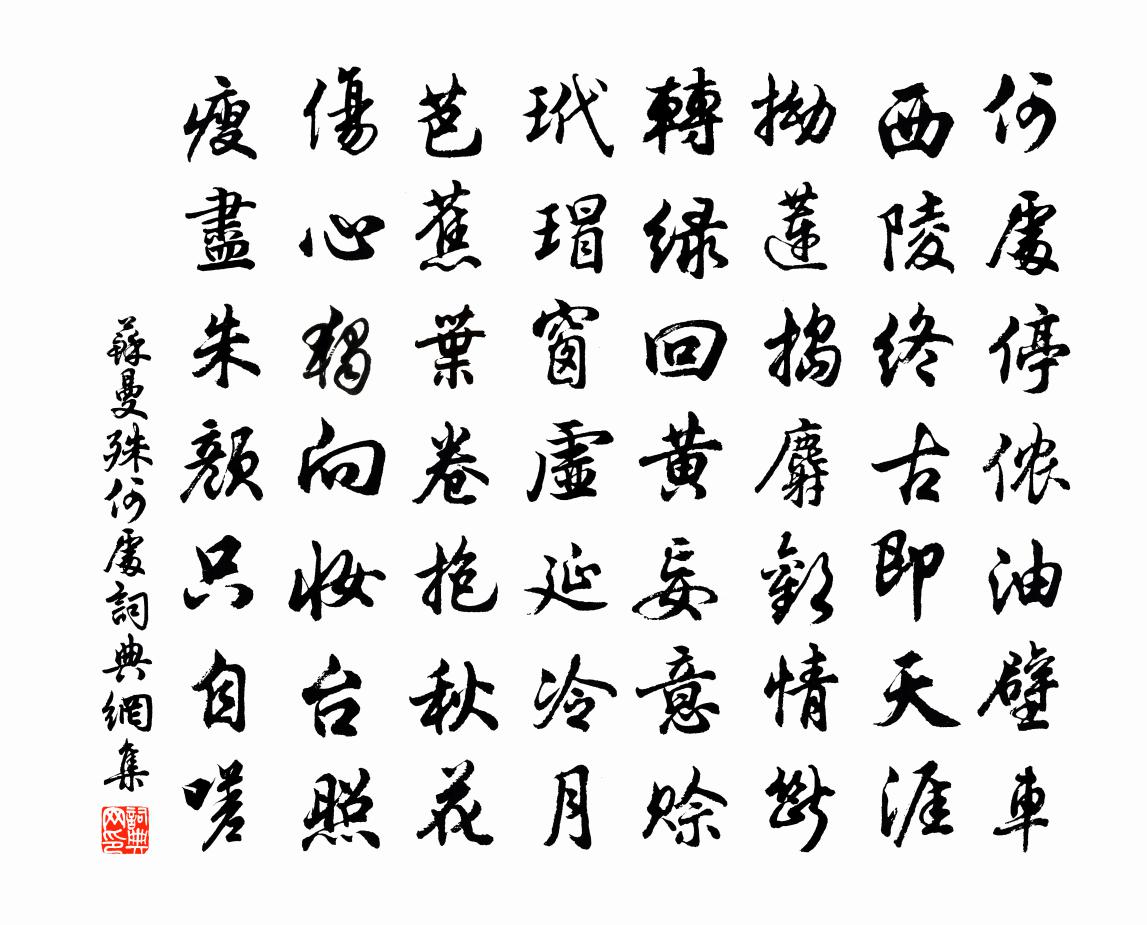 何處停儂油壁車
西陵終古即天涯
拗蓮搗麝歡情斷
轉綠回黃妄意賒
玳瑁窗虛延冷月
芭蕉葉卷抱秋花
傷心獨向妝台照
瘦盡朱顏只自嗟
蘇曼殊何處詞典網集
詞典網印